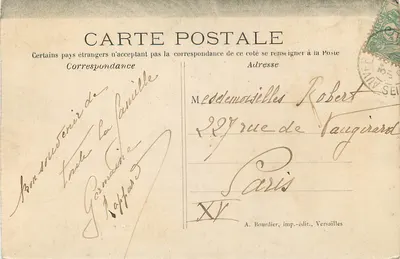 CARTE POSTALE
Certains pays étrangers n'acceptant pas la correspondance de ce coté se renseigner à la Poste
Correspondance
Adresse
Bon souvenir de
toute la famille
Germaine
Mesdemoiselles Robert
227 rue de Vaugirard
Paris
XV
A. Bourdier, imp.-édit., Versailles